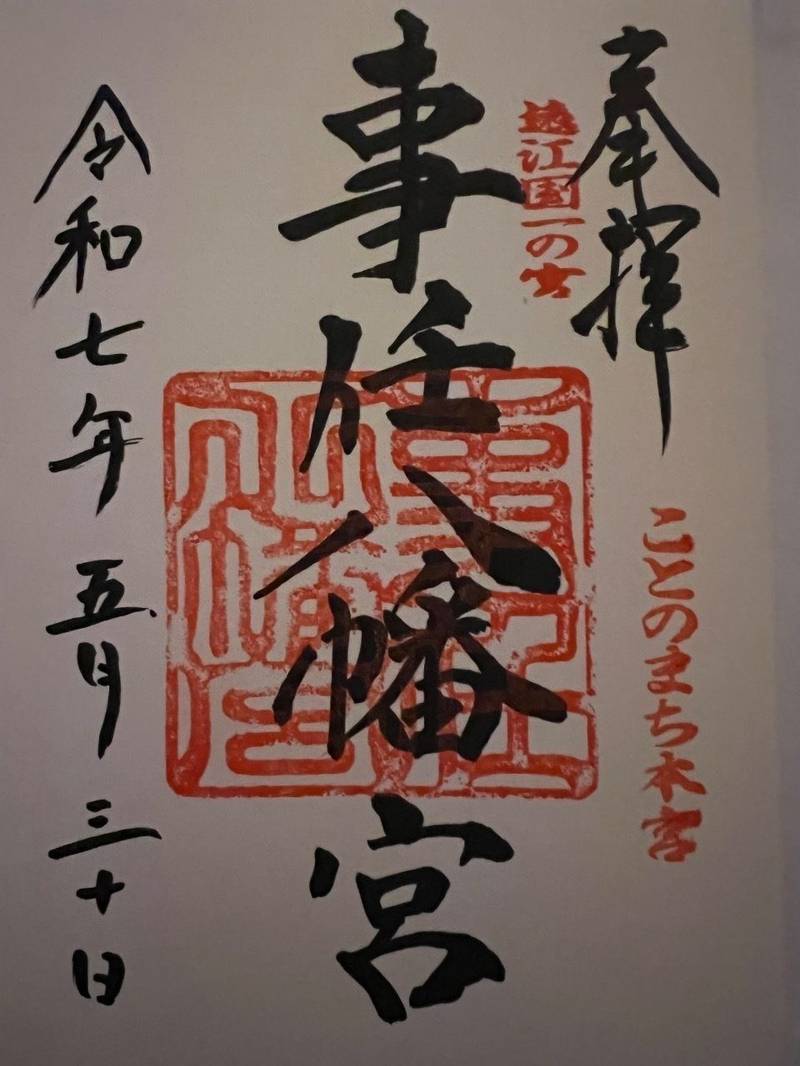 奉拝
ことのまち本宮
遠江国一の宮
事任八幡宮
令和七年五月三十日